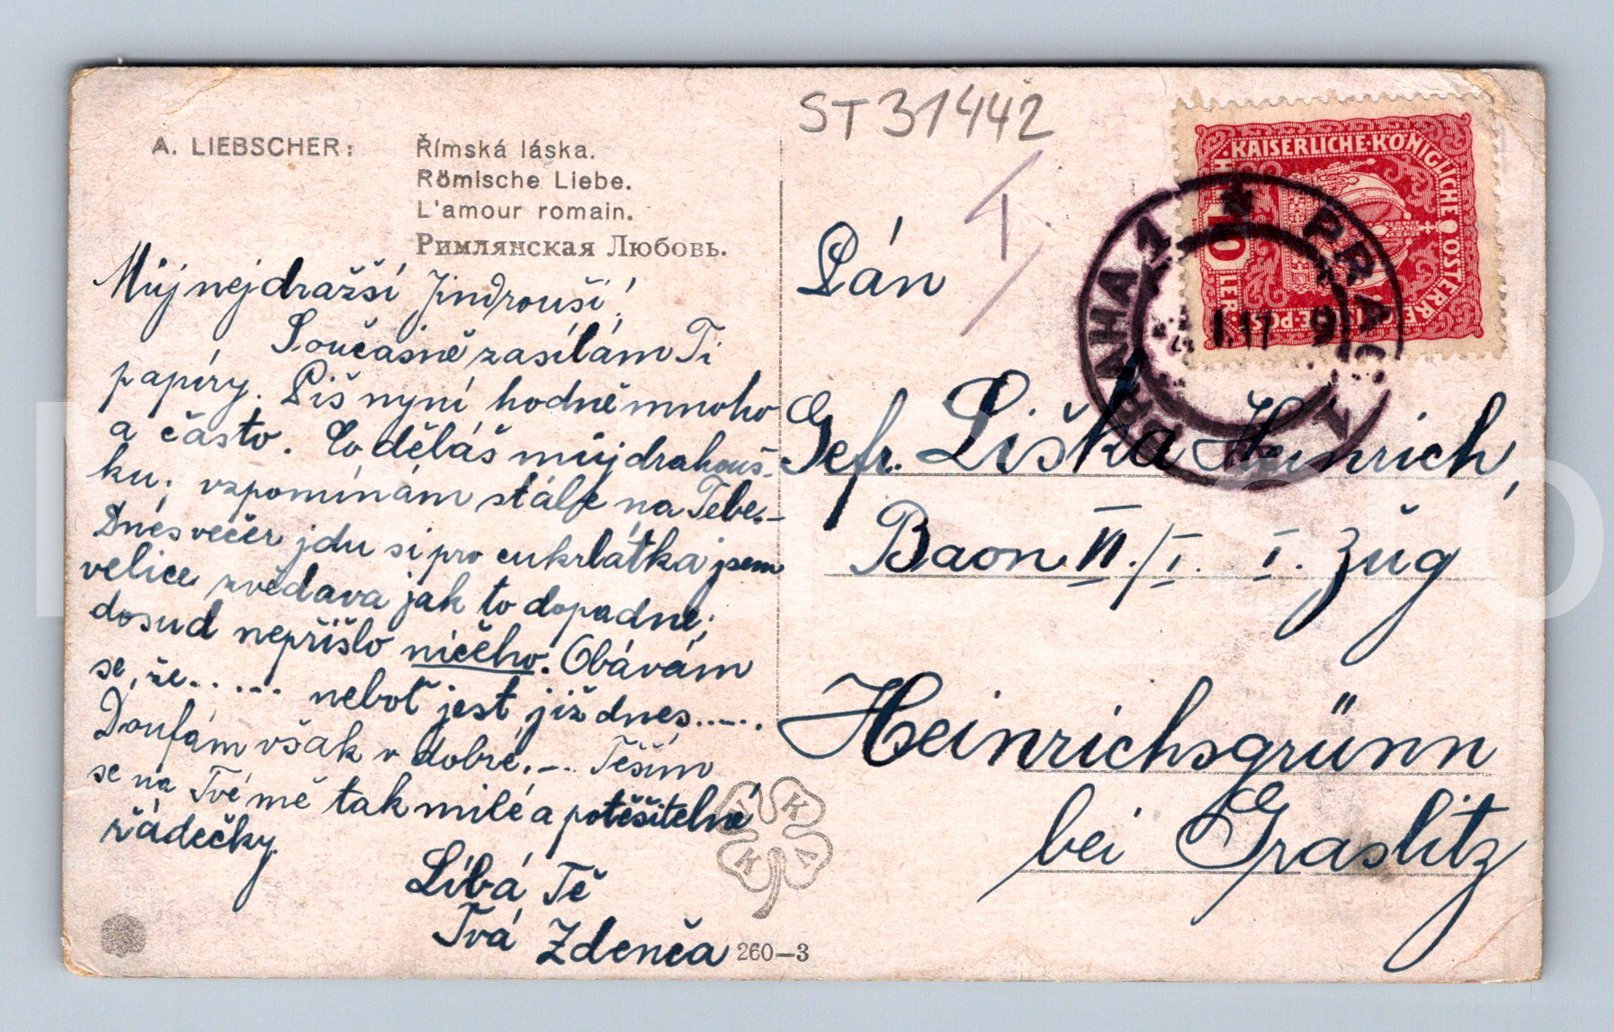 ST31442
A. LIEBSCHER: Římská láska.
Römische Liebe.
L'amour romain.
Римлянская Любовь.
Můj nejdražší Jindrouši!
Současně zasílám Ti
papíry. Piš nyní hodně mnoho
a často. Co děláš můj drahouš-
ku; vzpomínám stále na Tebe.–
Dnes večer jdu si pro cukrlátka jsem
velice zvědava jak to dopadne;
dosud nepřišlo ničeho. Obávám
se, že...... neboť jest již dnes.....
Doufám však v dobré.–. Těším
se na Tvé mě tak milé a potěšitelné
řádečky.
Líbá Tě
Tvá Zdenča
260–3
KAISERLICHE KÖNIGLICHE ÖSTERREICHISCHE POST
10 HELLER
PRAHA 1 PRAG 1
Pán
Gefr. Liška Heinrich,
Baon VI./I. I. Zug
Heinrichsgrünn
bei Graslitz